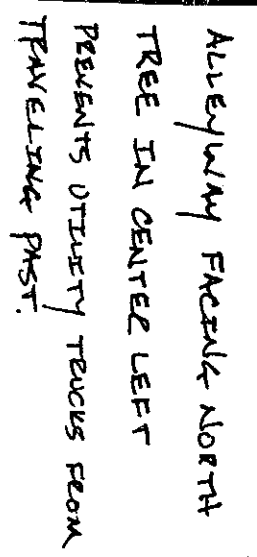 ALLEYWAY FACING NORTH
TREE IN CENTER LEFT
PREVENTS UTILITY TRUCKS FROM
TRAVELING PAST.